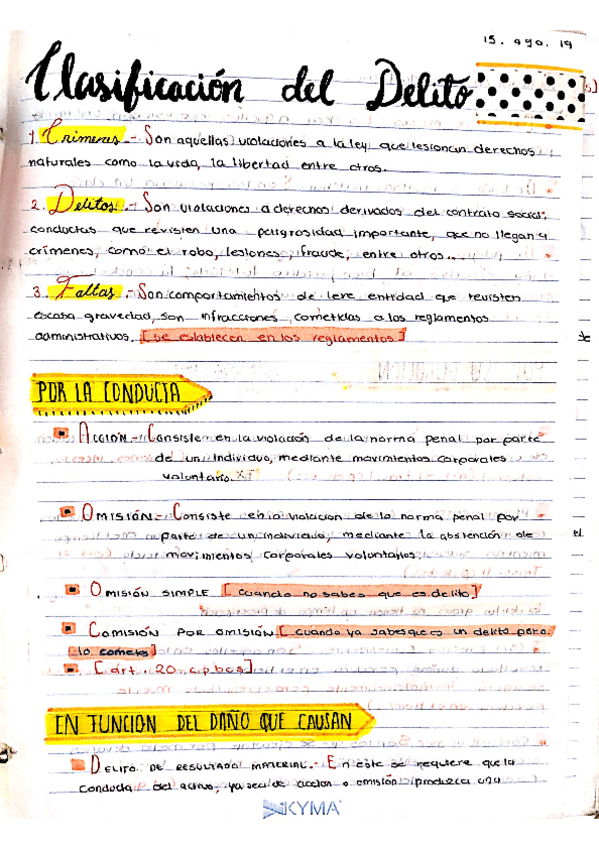 15. ago. 19
Clasificación del Delito
1. Crimenes.- Son aquellas violaciones a la ley que lesionan derechos
naturales como la vida, la libertad entre otros.
2. Delitos.- Son violaciones a derechos derivados del contrato social;
conductas que revisten una peligrosidad importante, que no llegan a
crímenes, como el robo, lesiones, fraude, entre otros..
3. Faltas.- Son comportamientos de leve entidad que revisten
escasa gravedad, son infracciones cometidas a los reglamentos
administrativos. [se establecen en los reglamentos]
POR LA CONDUCTA
ACCIÓN.- Consiste en la violación de la norma penal por parte
de un individuo, mediante movimientos corporales
voluntario.
OMISIÓN.- Consiste en la violación de la norma penal por
parte de un individuo, mediante la abstención de
movimientos corporales voluntarios.
OMISIÓN SIMPLE [cuando no sabes que es delito]
COMISIÓN POR OMISIÓN [cuando ya sabes que es un delito pero
lo cometes]
[art. 20 c.p.bcs]
EN FUNCION DEL DAÑO QUE CAUSAN
DELITO DE RESULTADO MATERIAL.- En este se requiere que la
conducta del activo, ya sea de acción o omisión produzca una
KYMA